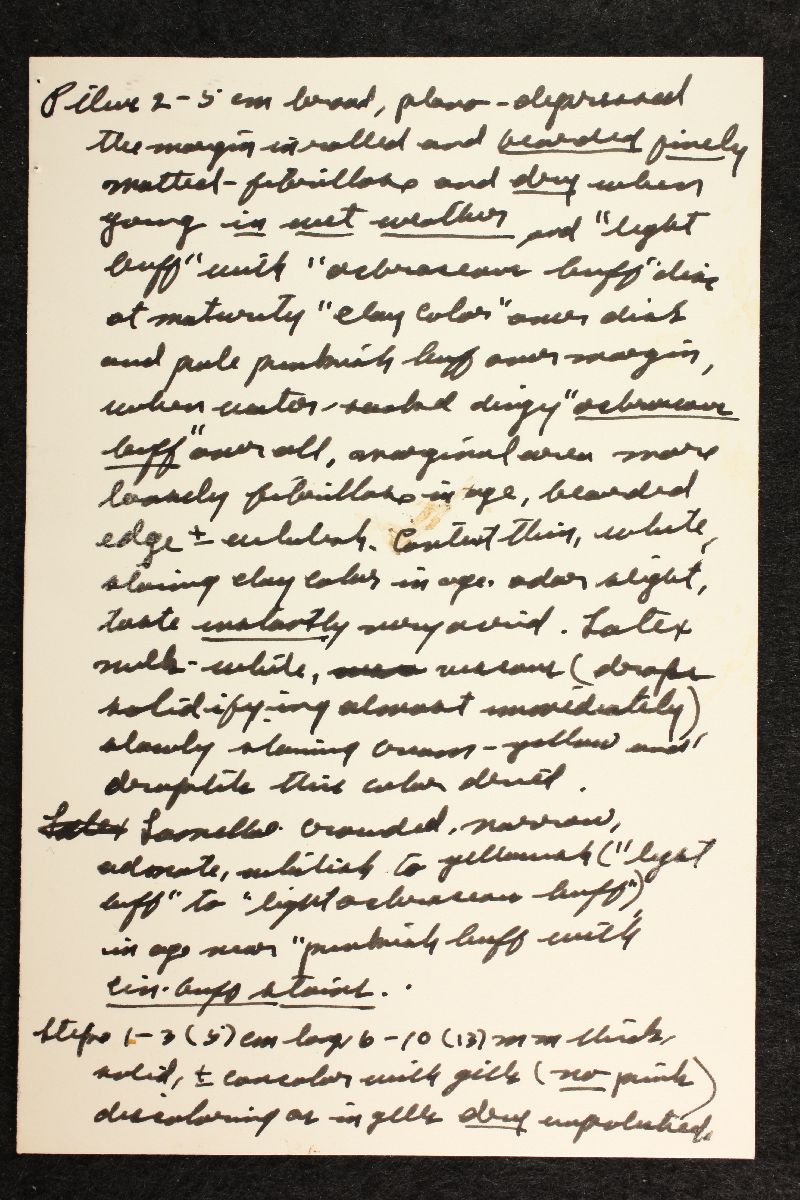 Pileus 2-5 cm broad, plano-depressed
the margin inrolled and bearded finely
matted-fibrillose and dry when
young in wet weather and "light
buff" with "ochraceous buff" disc
at maturity "clay color" over disk
and pale pinkish buff over margin,
when water-soaked dingy "ochraceous
buff" over all, marginal area more
loosely fibrillose in age, bearded
edge ± whitish. Context thin, white,
staining clay color in age. odor slight,
taste instantly very acrid. Latex
milk-white, viscous (drops
solidifying almost immediately)
slowly staining cream-yellow and
droplets this color dried.
Latex Lamellae crowded, narrow,
adnate, whitish to yellowish ("light
buff" to "light ochraceous buff")
in age near "pinkish buff with
cin. buff stains.
Stipe 1-3 (5) cm long 6-10 (13) mm thick
solid, ± concolor with gills (no pink)
discoloring as in gills dry unpolished,